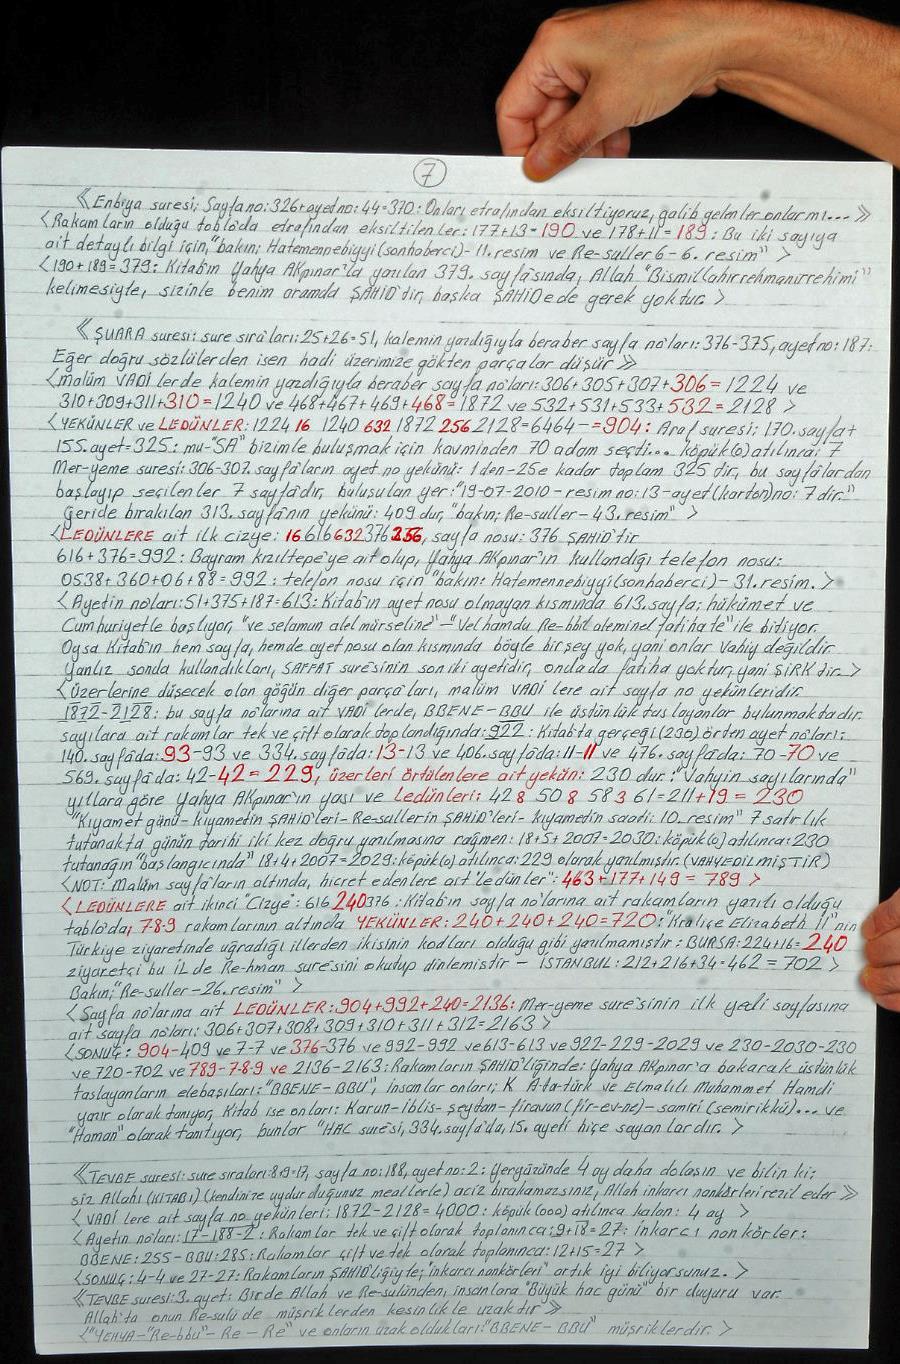 7
《Enbiya suresi; Sayfa no: 326+ayet no: 44=370: Onları etrafından eksiltiyoruz, galib gelenler onlar mı...》
<Rakamların olduğu tablo'da etrafından eksiltilenler: 177+13=190 ve 178+11=189: Bu iki sayıya
ait detaylı bilgi için, "bakın; Hatemennebiyyi(sonhaberci)-11.resim ve Re-suller 6-6. resim" >
<190+189=379: Kitab'ın Yahya Akpınar'la yazılan 379. sayfasında, Allah "Bismillahirrehmanirrehimi"
kelimesiyle, sizinle benim aramda ŞAHİD'tir, başka ŞAHİDE de gerek yoktur. >
《ŞUARA suresi: sure sıra'ları: 25+26=51, kalemin yazdığıyla beraber sayfa no'ları: 376-375, ayet no: 187:
Eğer doğru sözlülerden isen hadi üzerimize gökten parçalar düşür》
<malûm VADİ lerde kalemin yazdığıyla beraber sayfa no'ları: 306+305+307+306=1224 ve
310+309+311+310=1240 ve 468+467+469+468=1872 ve 532+531+533+532=2128 >
<YEKÜNLER ve LEDÜNLER: 1224 16 1240 632 1872 256 2128=6464-=904: Araf suresi; 170. sayfa+
155.ayet=325: mu-"SA" bizimle buluşmak için kavminden 70 adam seçti... köpük(o) atılınca: 7
Mer-yeme suresi: 306-307. sayfa'ların ayet no yekünü: 1 den-25 e kadar toplam 325 dir, bu sayfa'lardan
başlayıp seçilenler 7 sayfa'dır, buluşulan yer: "19-07-2010-resim no: 13-ayet(karton)no: 7 dir."
Geride bırakılan 313. sayfa'nın yekünü: 409 dur, "bakın; Re-suller-43. resim" >
<LEDÜNLERE ait ilk cizye: 16 616632376 256, sayfa nosu: 376 ŞAHİD'tir
616+376=992: Bayram kızıltepe'ye ait olup, Yahya Akpınar'ın kullandığı telefon nosu:
0538+360+06+88=992: telefon nosu için "bakın: Hatemennebiyyi(sonhaberci)-31.resim. >
<Ayetin no'ları: 51+375+187=613: Kitab'ın ayet nosu olmayan kısmında 613. sayfa; hükümet ve
Cumhuriyetle başlıyor, "ve selamun alel mürseline"-"Vel hamdu Re-bbil aleminel fatiha te" ile bitiyor.
Oysa Kitab'ın hem sayfa, hemde ayet nosu olan kısmında böyle bir şey yok, yani onlar Vahiy değildir.
Yanlız sonda kullandıkları, SAFFAT sure'sinin son iki ayetidir, onda da fatiha yoktur, yani ŞİRK tir. >
<Üzerlerine düşecek olan göğün diğer parça'ları, malûm VADİ lere ait sayfa no yekünleridir.
1872-2128: bu sayfa no'larına ait VADİ lerde, BBENE-BBU ile üstünlük taslayanlar bulunmaktadır.
sayılara ait rakamlar tek ve çift olarak toplandığında: 922: Kitab'ta gerçeği (230) örten ayet no'ları:
140. sayfa'da: 93-93 ve 334. sayfa'da: 13-13 ve 406. sayfa'da: 11-11 ve 476. sayfa'da: 70-70 ve
569. sayfa'da: 42-42=229, üzerleri örtülenlere ait yekün: 230 dur: "Vahyin sayılarında"
yıllara göre Yahya Akpınar'ın yaşı ve Ledünleri: 42 8 50 8 58 3 61=211+19=230
"Kıyamet günü-kıyametin ŞAHİD'leri-Re-sullerin ŞAHİD'leri-kıyametin saati: 10. resim" 7 satırlık
tutanakta günün tarihi iki kez doğru yazılmasına rağmen: 18+5+2007=2030: köpük(o) atılınca: 230
tutanağın "başlangıcında" 18+4+2007=2029: köpük(o) atılınca: 229 olarak yazılmıştır. (VAHYEDİLMİŞTİR)
<NOT: Malûm sayfa'ların altında, hicret edenlere ait "ledünler": 463+177+149=789 >
<LEDÜNLERE ait ikinci "Cizye": 616 240 376: Kitab'ın sayfa no'larına ait rakamların yazılı olduğu
tablo'da, 7-8-9 rakamlarının altında YEKÜNLER: 240+240+240=720: "Kraliçe Elizabeth II" nin
Türkiye ziyaretinde uğradığı illerden ikisinin kodları olduğu gibi yazılmamıştır: BURSA: 224+16=240
ziyaretçi bu il de Re-hman sure'sini okutup dinlemiştir - İSTANBUL: 212+216+34=462=702 >
Bakın; "Re-suller-26. resim" >
<Sayfa no'larına ait LEDÜNLER: 904+992+240=2136: Mer-yeme sure'sinin ilk yedi sayfasına
ait sayfa no'ları: 306+307+308+309+310+311+312=2163 >
<SONUÇ: 904-409 ve 7-7 ve 376-376 ve 992-992 ve 613-613 ve 922-229-2029 ve 230-2030-230
ve 720-702 ve 789-7-8-9 ve 2136-2163: Rakamların ŞAHİD'liğinde: Yahya Akpınar'a bakarak üstünlük
taslayanların elebaşıları: "BBENE-BBU", insanlar onları; K Ata-türk ve Elmalılı Muhammet Hamdi
yazır olarak tanıyor, Kitab ise onları: Karun-iblis-şeytan-firavun(fir-ev-ne)-samiri(semirikkü)... ve
"Haman" olarak tanıtıyor, bunlar "HAC suresi, 334. sayfa'da, 15. ayeti hiçe sayanlardır. >
《TEVBE suresi: sure sıraları: 8+9=17, sayfa no: 188, ayet no: 2: Yeryüzünde 4 ay daha dolaşın ve bilin ki;
siz Allahı (KİTABI) (kendinize uydurduğunuz meallerle) aciz bırakamazsınız, Allah inkarcı nankörleri rezil eder》
<VADİ lere ait sayfa no yekünleri: 1872-2128=4000: köpük(ooo) atılınca kalan: 4 ay >
<Ayetin no'ları: 17-188-2: Rakamlar tek ve çift olarak toplanınca: 9+18=27: inkarcı nankörler:
BBENE: 255-BBU: 285: Rakamlar çift ve tek olarak toplanınca: 12+15=27 >
<SONUÇ: 4-4 ve 27-27: Rakamların ŞAHİD'liğiyle; "inkarcı nankörleri" artık iyi biliyorsunuz. >
《TEVBE suresi: 3. ayet: Birde Allah ve Re-sulünden, insanlara "Büyük hac günü" bir duyuru var.
Allah'ta onun Re-sulü de müşriklerden kesinlikle uzaktır》
<"YEHYA-"Re-bbu"-Re-Re" ve onların uzak oldukları: "BBENE-BBU" müşriklerdir. >